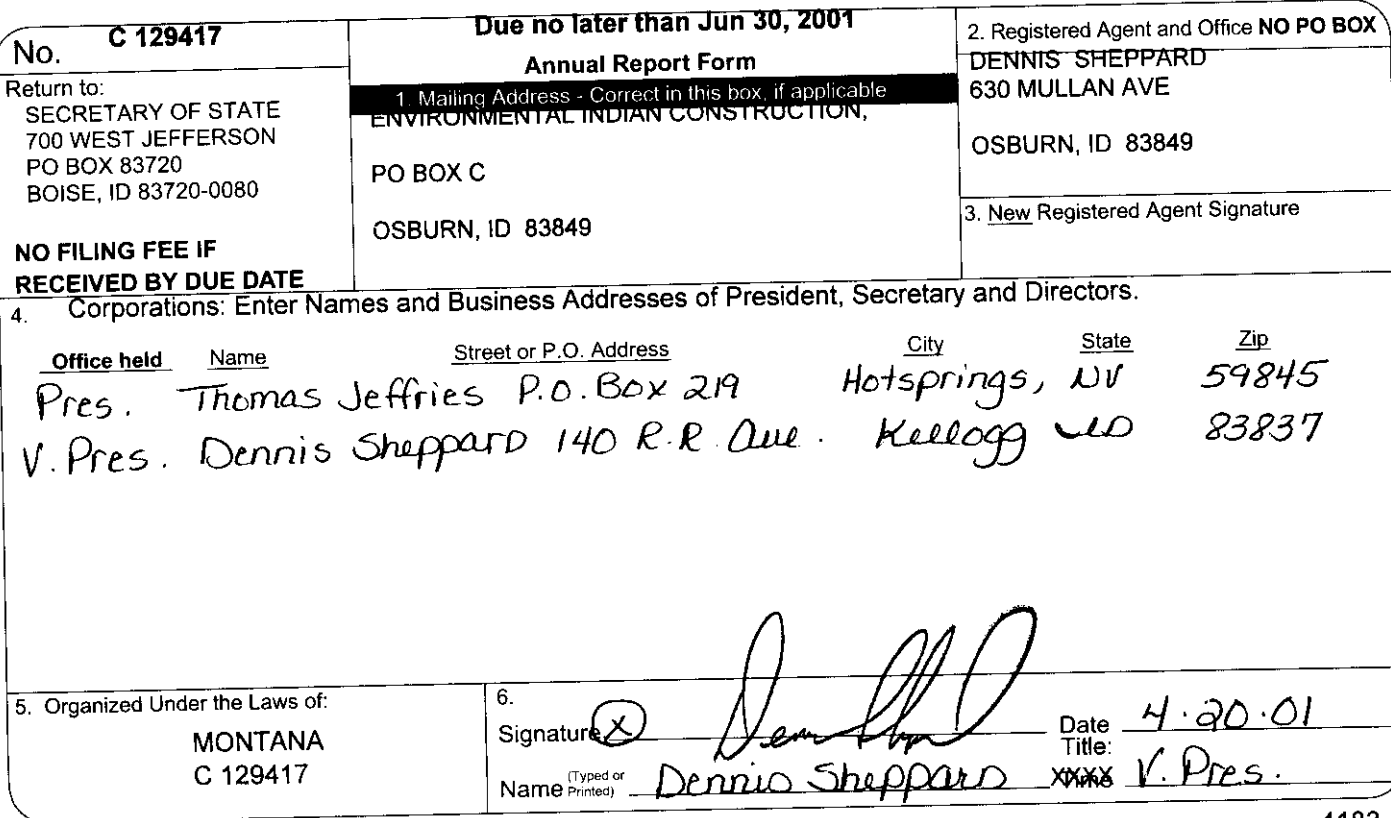 No. C 129417
Return to:
SECRETARY OF STATE
700 WEST JEFFERSON
PO BOX 83720
BOISE, ID 83720-0080
NO FILING FEE IF
RECEIVED BY DUE DATE
Due no later than Jun 30, 2001
Annual Report Form
1. Mailing Address - Correct in this box, if applicable
ENVIRONMENTAL INDIAN CONSTRUCTION,
PO BOX C
OSBURN, ID 83849
2. Registered Agent and Office NO PO BOX
DENNIS SHEPPARD
630 MULLAN AVE
OSBURN, ID 83849
3. New Registered Agent Signature
4. Corporations: Enter Names and Business Addresses of President, Secretary and Directors.
Office held Name Street or P.O. Address City State Zip
Pres. Thomas Jeffries P.O. Box 219 Hotsprings, NV 59845
V. Pres. Dennis Sheppard 140 R.R. Ave. Kellogg ID 83837
5. Organized Under the Laws of:
MONTANA
C 129417
6.
Signature X Date 4.20.01
Title:
Name (Typed or Printed) Dennis Sheppard V. Pres.